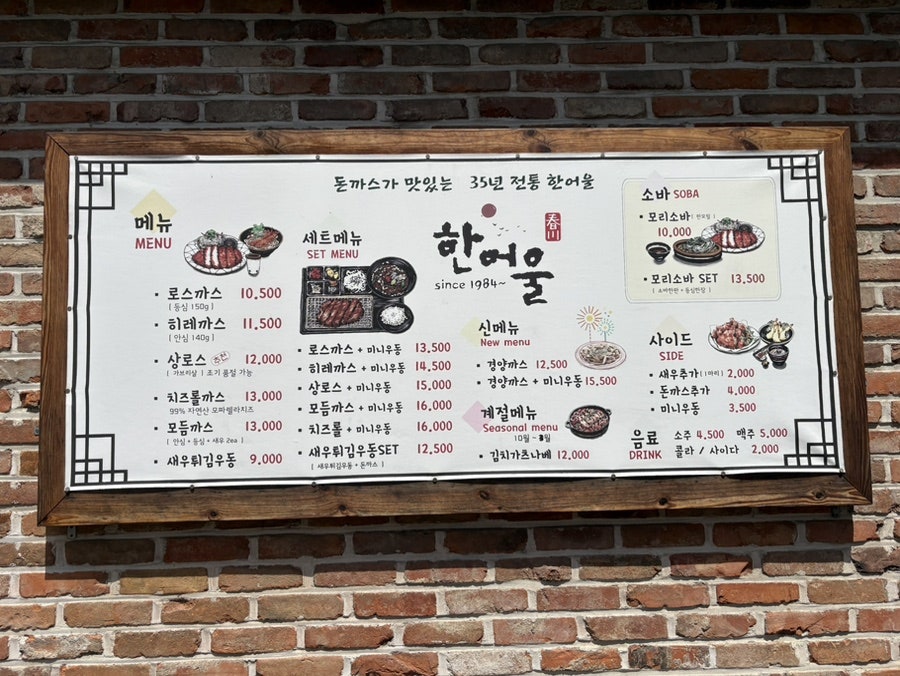 돈까스가 맛있는 35년 전통 한어울
메뉴
MENU
로스까스 10,500
[ 등심 150g ]
히레까스 11,500
[ 안심 140g ]
상로스 추천 12,000
[ 가브리살 ] 조기 품절 가능
치즈롤까스 13,000
99% 자연산 모짜렐라치즈
모듬까스 13,000
[ 안심 + 등심 + 새우 2ea ]
새우튀김우동 9,000
세트메뉴
SET MENU
로스까스 + 미니우동 13,500
히레까스 + 미니우동 14,500
상로스 + 미니우동 15,000
모듬까스 + 미니우동 16,000
치즈롤 + 미니우동 16,000
새우튀김우동SET 12,500
[ 새우튀김우동 + 돈까스 ]
한어울
春川
since 1984~
신메뉴
New menu
경양까스 12,500
경양까스 + 미니우동 15,500
계절메뉴
Seasonal menu
10월 ~ 3월
김치가츠나베 12,000
소바 SOBA
모리소바
10,000
모리소바 SET 13,500
[ 소바한판 + 등심한장 ]
사이드
SIDE
새우추가 [1마리] 2,000
돈까스추가 4,000
미니우동 3,500
음료
DRINK
소주 4,500 맥주 5,000
콜라 / 사이다 2,000